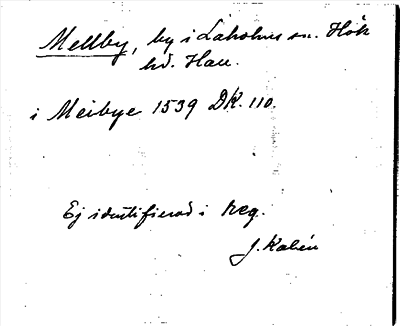 Mellby, by i Laholms sn. Hök
hd. Hall.
i Meibye 1539 DK. 110.
Ej identifierad i Reg.
J. Kalén